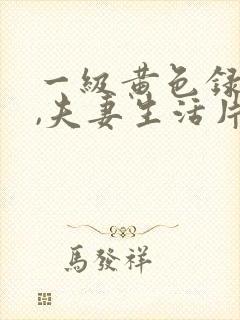 一級黄色録
,夫妻生活片
馬發祥